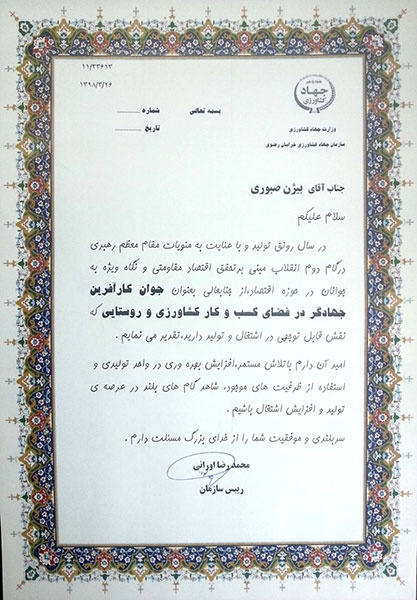 ۱۱/۳۳۶۱۳
۱۳۹۸/۳/۲۶
جهاد
کشاورزی
بسمه تعالی
شماره ............
تاریخ ............
وزارت جهاد کشاورزی
سازمان جهاد کشاورزی خراسان رضوی
جناب آقای بیژن صبوری
سلام علیکم
در سال رونق تولید و با عنایت به منویات مقام معظم رهبری
درگام دوم انقلاب مبنی برتحقق اقتصاد مقاومتی و نگاه ویژه به
جوانان در حوزه اقتصاد،از جنابعالی بعنوان جوان کارآفرین
جهادگر در فضای کسب و کار کشاورزی و روستایی که
نقش قابل توجهی در اشتغال و تولید دارید،تقدیر می نمایم .
امید آن دارم باتلاش مستمر،افزایش بهره وری در واحد تولیدی و
استفاده از ظرفیت های موجود، شاهد گام های بلند در عرصه ی
تولید و افزایش اشتغال باشیم .
سربلندی و موفقیت شما را از خدای بزرگ مسئلت دارم .
محمدرضا اورانی
رییس سازمان